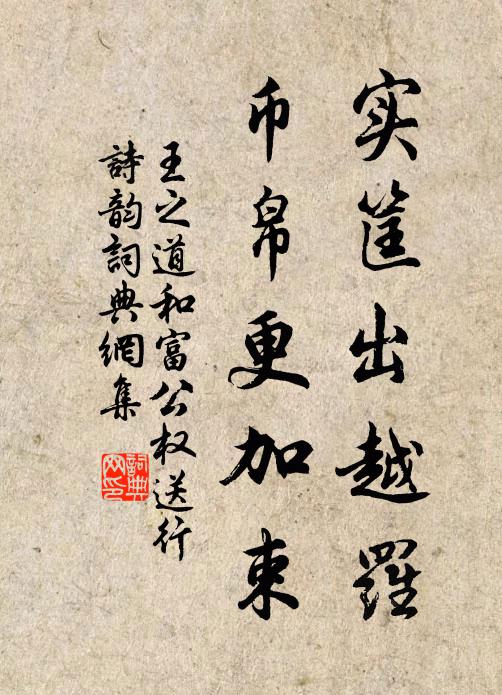 实筐出越羅
币帛更加束
王之道和富公权送行
詩韵詞典網集
詞典网印